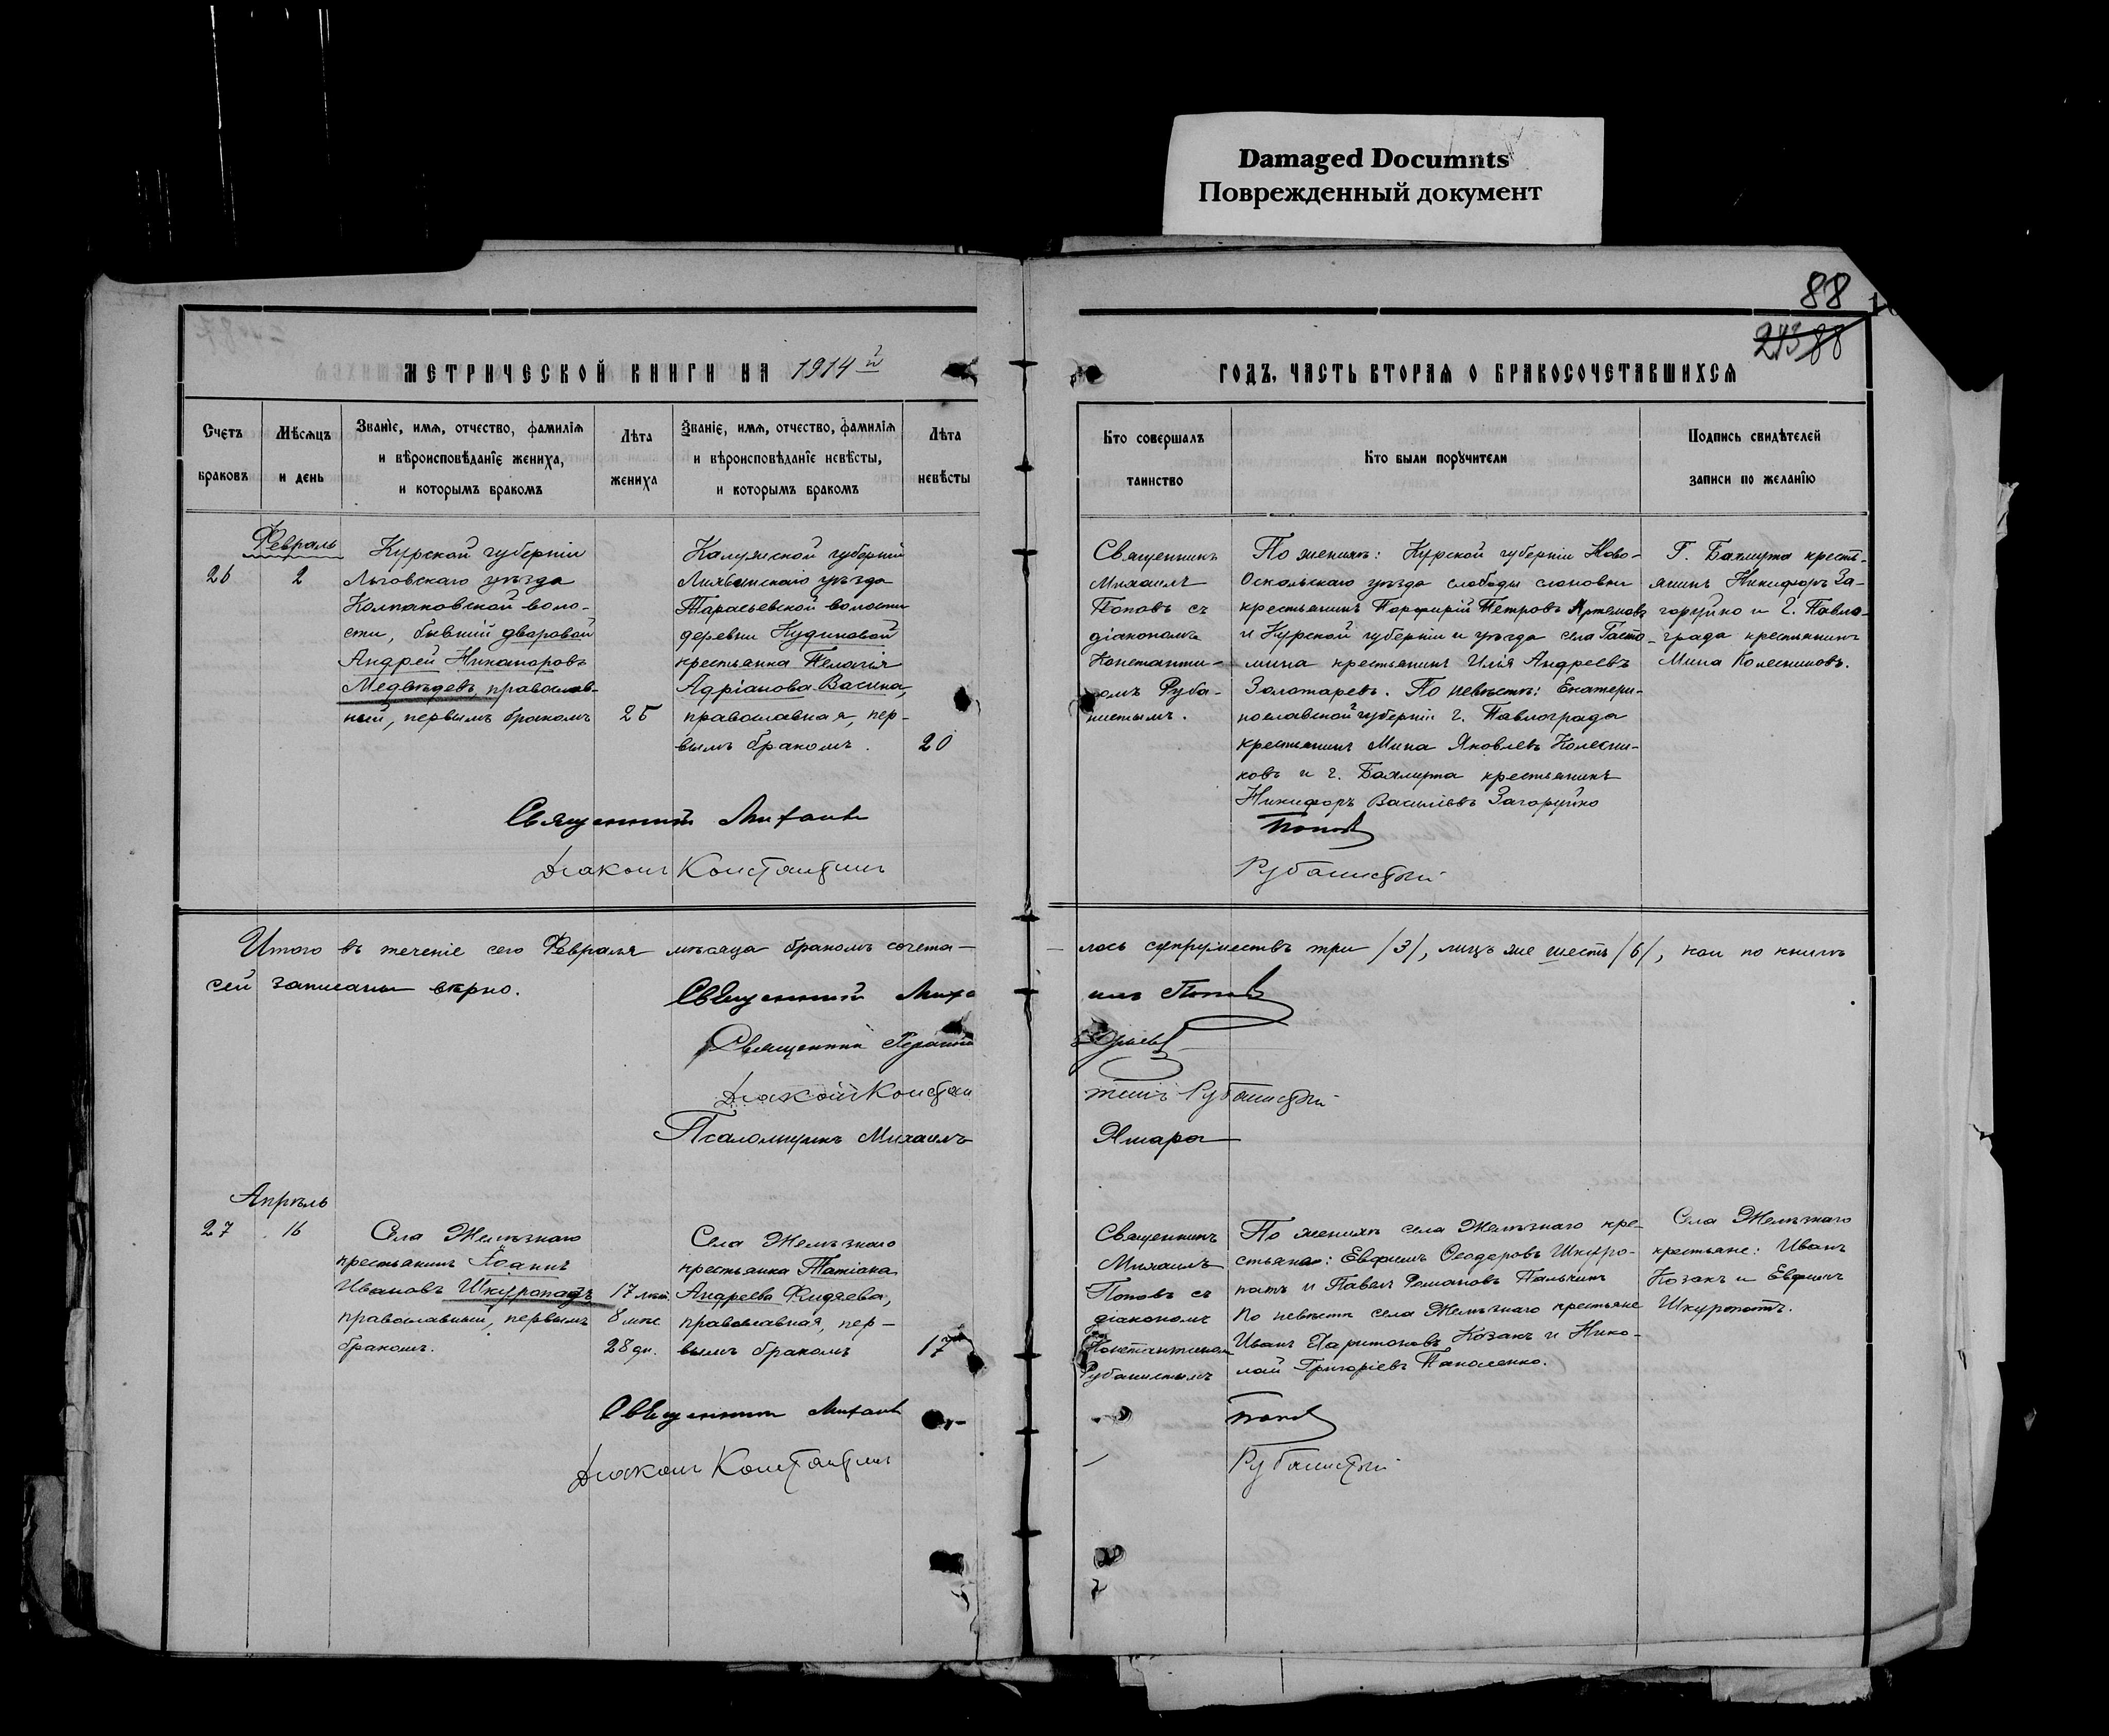 Damaged Documnts
Поврежденный документ
88
243 88
МЕТРИЧЕСКОЙ КНИГИ НА 1914 й
ГОДЪ, ЧАСТЬ ВТОРАЯ О БРАКОСОЧЕТАВШИХСЯ
Счетъ
браковъ
Мѣсяцъ
и день
Званіе, имя, отчество, фамилія
и вѣроисповѣданіе жениха,
и которымъ бракомъ
Лѣта
жениха
Званіе, имя, отчество, фамилія
и вѣроисповѣданіе невѣсты,
и которымъ бракомъ
Лѣта
невѣсты
Кто совершалъ
таинство
Кто были поручители
Подпись свидѣтелей
записи по желанію
Февраль
26
2
Курской губерніи
Льговскаго уѣзда
Колпаковской воло-
сти, бывшій дворовой
Андрей Никаноровъ
Медвѣдевъ, православ-
ный, первымъ бракомъ
25
Калужской губерніи
Лихвинскаго уѣзда
деревни Кудиновой
крестьянка Пелагія
Адріанова Васина,
православная, пер-
вымъ бракомъ.
20
Священникъ
Михаилъ
Поповъ съ
діакономъ
Константи-
номъ Руба-
нистымъ.
По женихѣ: Курской губерніи Ново-
Оскольскаго уѣзда слободы слоновки
крестьянинъ Порфирій Петровъ Артемовъ
и Курской губерніи и уѣзда села
крестьянинъ Илія Андреевъ
Золотаревъ. По невѣстѣ: Екатери-
нославской губерніи г. Павлограда
крестьянинъ Мина Яковлевъ Колесни-
ковъ и г. Бахмута крестьянинъ
Никифоръ Василіевъ Загоруйко
Г. Бахмута кресть-
янинъ Никифоръ За-
горуйко и г. Павло-
града крестьянинъ
Мина Колесниковъ.
Священникъ Михаилъ
Поповъ
Діаконъ Константинъ
Рубанистый
Итого въ теченіе сего Февраля мѣсяца бракомъ сочета-
лось супружествъ три /3/, лицъ же шесть /6/, кои по книгѣ
сей записаны вѣрно.
Священникъ Миха
илъ Поповъ
Священникъ
Юрьевъ
Діаконъ Констан
тинъ Рубанистый
Псаломщикъ Михаилъ
Апрѣль
27
16
Села Желѣзнаго
крестьянинъ Іоаннъ
Ивановъ Шкуропадъ
православный, первымъ
бракомъ.
17 лѣтъ
8 мѣс
28 дн.
Села Желѣзнаго
крестьянка Татіана
Андреева Фидяева,
православная, пер-
вымъ бракомъ
17
Священникъ
Михаилъ
Поповъ съ
діакономъ
Константиномъ
Рубанистымъ
По женихѣ села Желѣзнаго кре-
стьяне: Евфимъ Ѳеодоровъ Шкуро-
патъ и Павелъ Романовъ Пальчикъ
По невѣстѣ села Желѣзнаго крестьяне
Иванъ Харитоновъ Козакъ и Нико-
лай Григоріевъ Паноленко.
Села Желѣзнаго
крестьяне: Иванъ
Козакъ и Евфимъ
Шкуропатъ.
Священникъ Михаилъ
Поповъ
Діаконъ Константинъ
Рубанистый